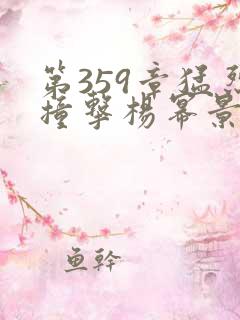 第359章猛烈
撞擊楊冪景
魚幹